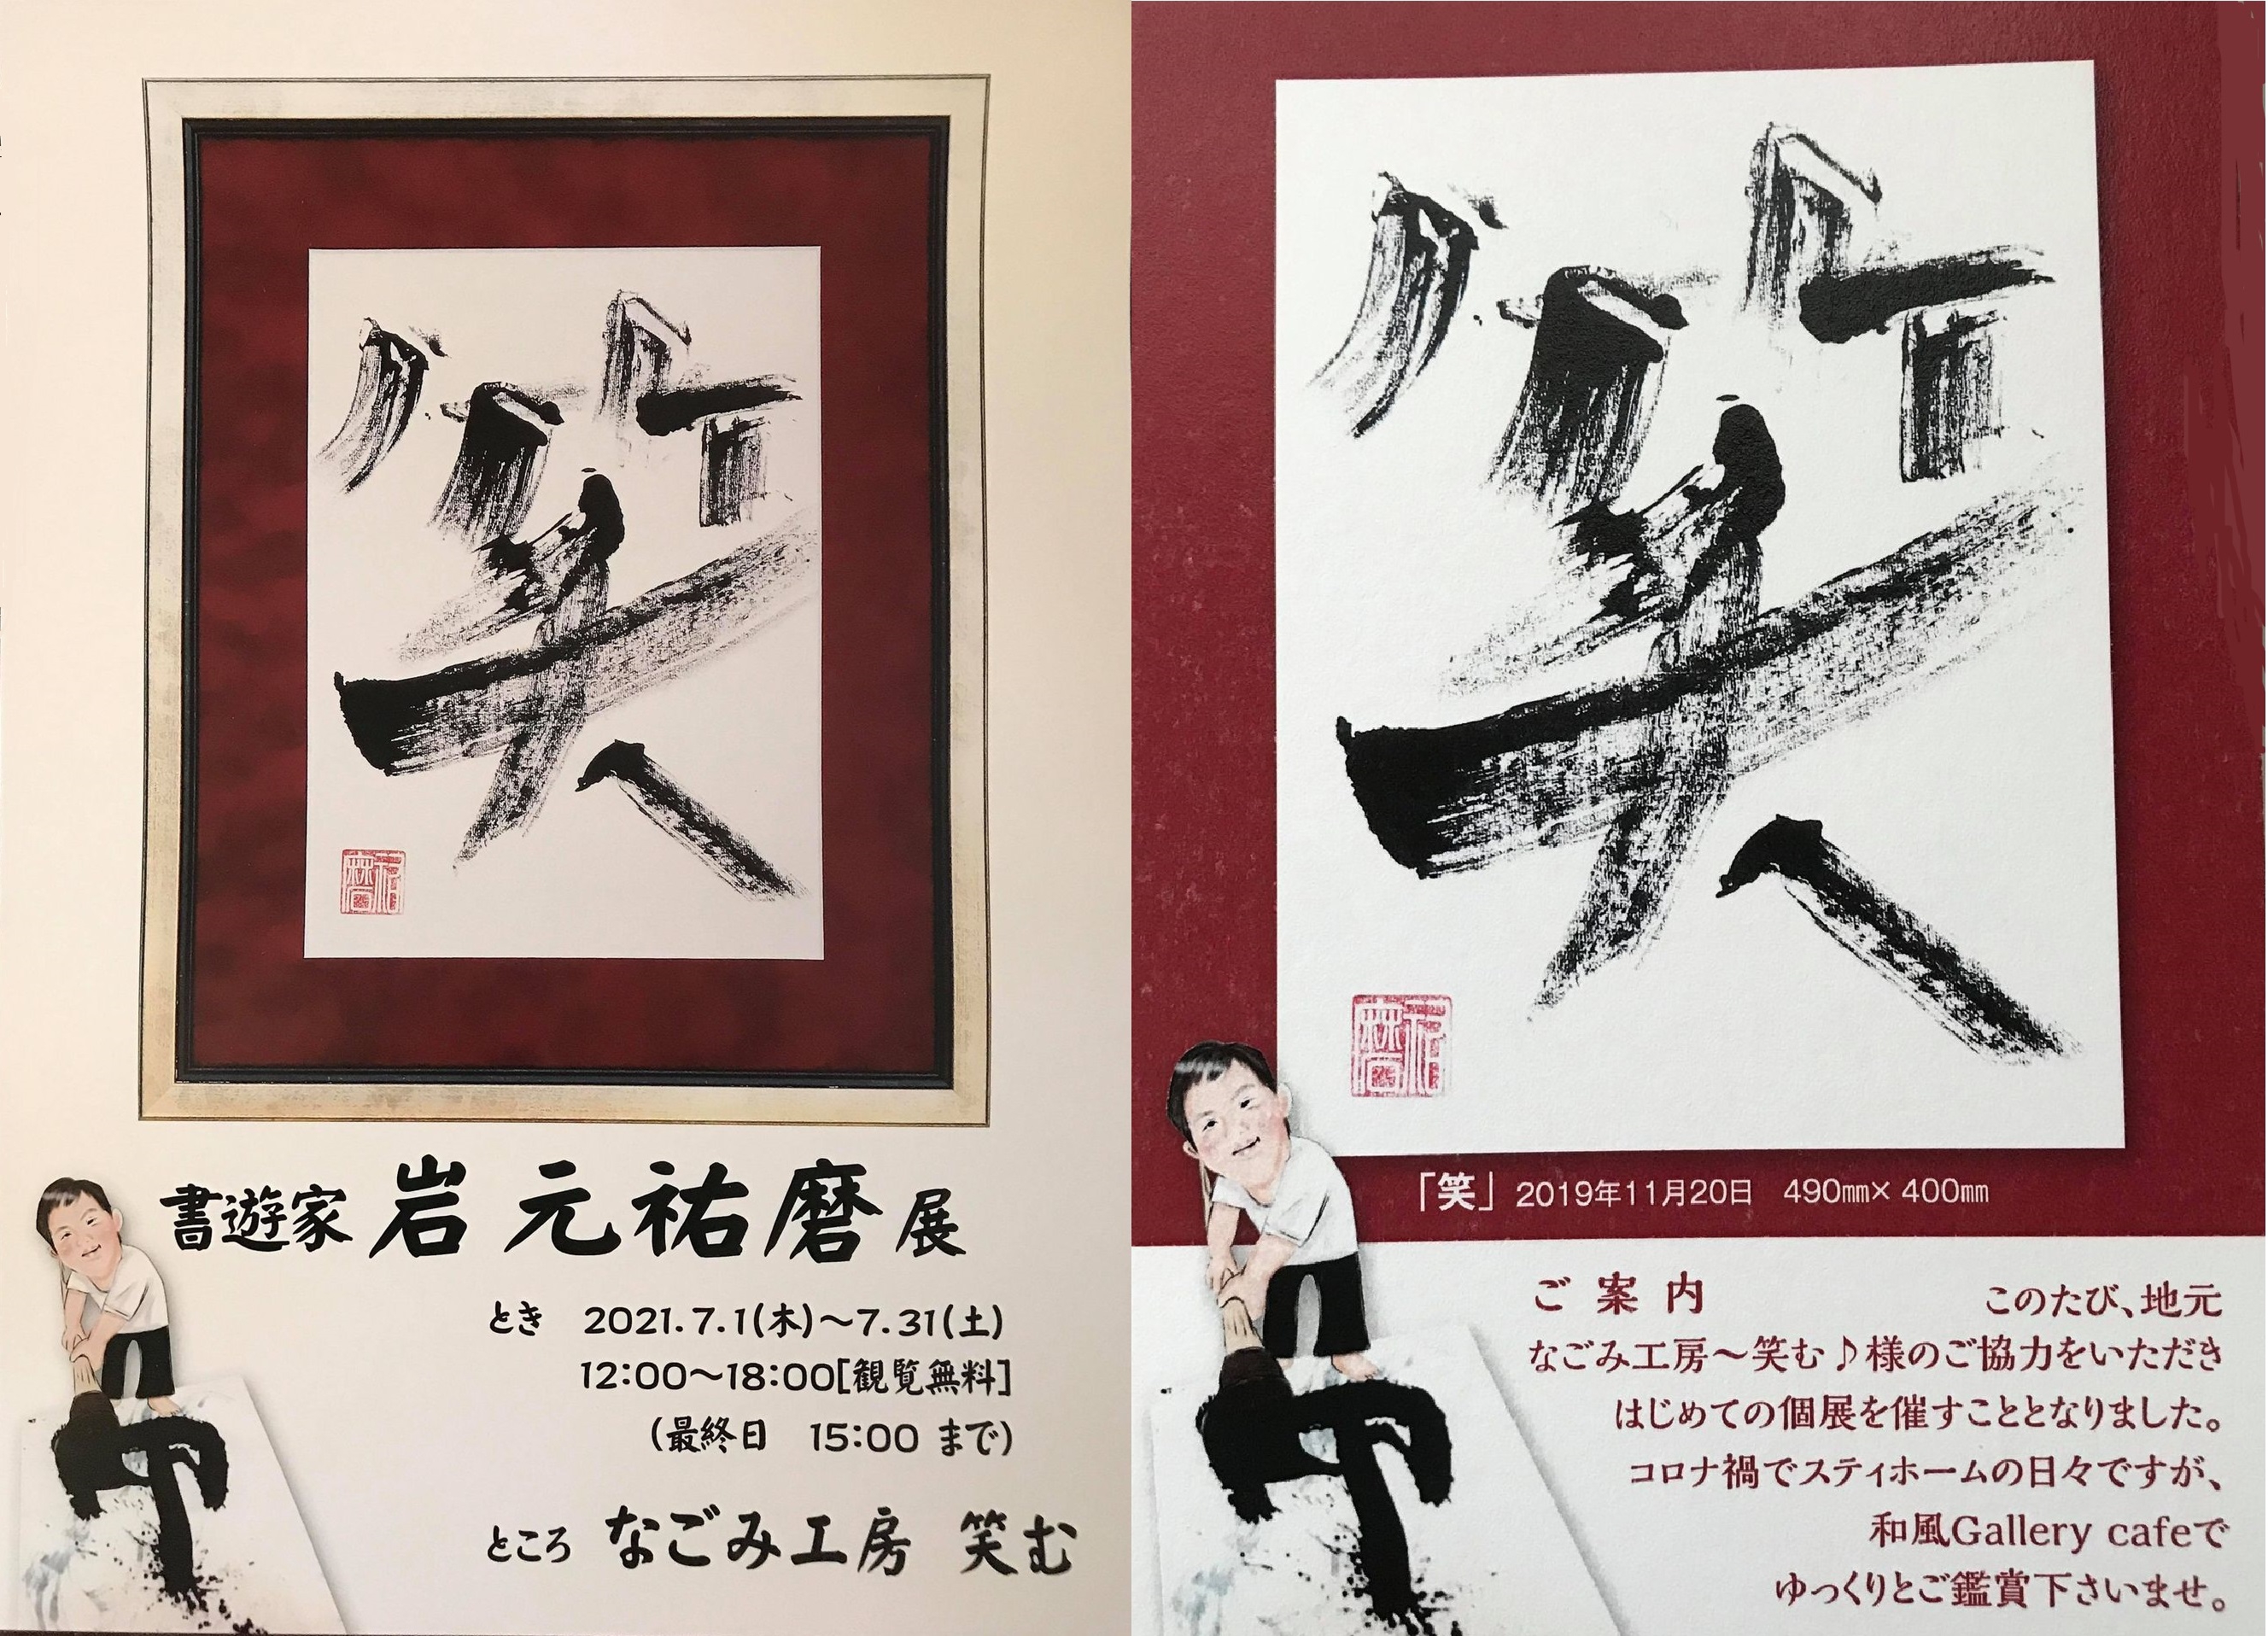 笑
祐磨
書遊家 岩元祐磨展
とき 2021.7.1(木)～7.31(土)
12:00～18:00[観覧無料]
(最終日 15:00 まで)
ところ なごみ工房 笑む
笑
祐磨
「笑」2019年11月20日 490㎜×400㎜
ご案内 このたび、地元
なごみ工房～笑む♪様のご協力をいただき
はじめての個展を催すこととなりました。
コロナ禍でスティホームの日々ですが、
和風Gallery cafeで
ゆっくりとご鑑賞下さいませ。